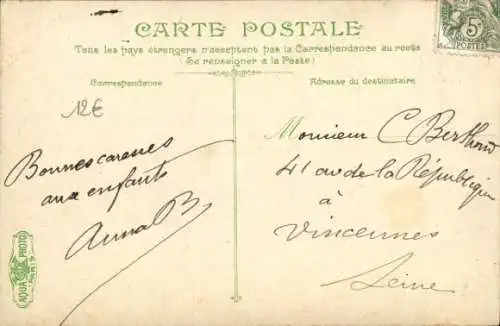 CARTE POSTALE
Tous les pays étrangers n'acceptent pas la Correspondance au recto
(Se renseigner a la Poste)
Correspondance
Adresse du destinataire
12€
Bonnes caresses
aux enfants
Anna B.
Monsieur C Berthou
41 av de la République
à
Vincennes
Seine
AQUA PHOTO
5c
POSTES